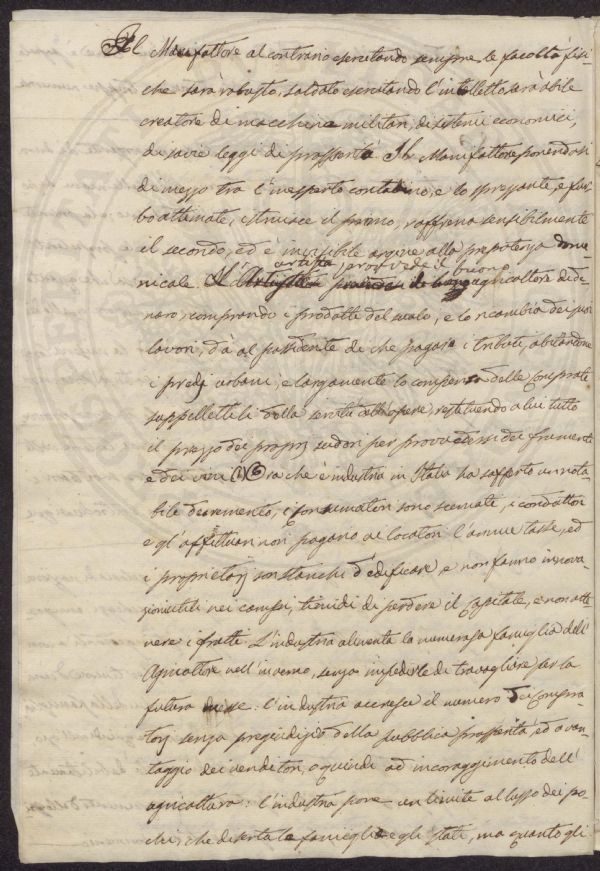 Il Manifattore al contrario esercitando sempre le facoltà fisi-
che sarà robusto soldato esercitando l'intelletto, sarà abile
creatore di macchine militari, di sistemi economici,
di savie leggi di prosperità. Il Manifattore ponendosi
di mezzo tra l'inesperto contadino, e lo sprezzante, e fur-
bo ottimate, istruisce il primo, raffrena sensibilmente
il secondo, ed è invisibile argine alla prepotenza domi-
artista provvede il buono
nicale. L' agricoltore di de-
naro, comprando i prodotti del suolo, e lo ricambia dei suoi
lavori, dà al possidente di che pagare i tributi, abitandone
i predj urbani, e largamente lo compensa delle comprate
suppellettili della servitù dell'opere, restituendo a lui tutto
il prezzo dei proprj sudori per provvedersi dei frumenti
e dei vini (1) Ora che è industria in Italia ha sofferto un nota-
bile decremento, i consumatori sono scemati, i conduttori
e gl'affittuari non pagano ai locatori l'annue tasse, ed
i proprietarj son stanchi d'edificare, e non fanno innova-
zioni utili nei campi, timidi di perdere il capitale, e non otte-
nere i frutti. L'industria alimenta la numerosa famiglia dell'
Agricoltore nell'inverno, senza impedirle di travagliare per la
futura messe: l'industria accresce il numero dei Compra-
tori senza pregiudizio della pubblica prosperità, ed a van-
taggio dei venditori, e quindi ad incoraggimento dell'
agricoltura: l'industria pone un limite al lusso dei po-
chi, che diserta le famiglie e gli Stati, ma quanto gli